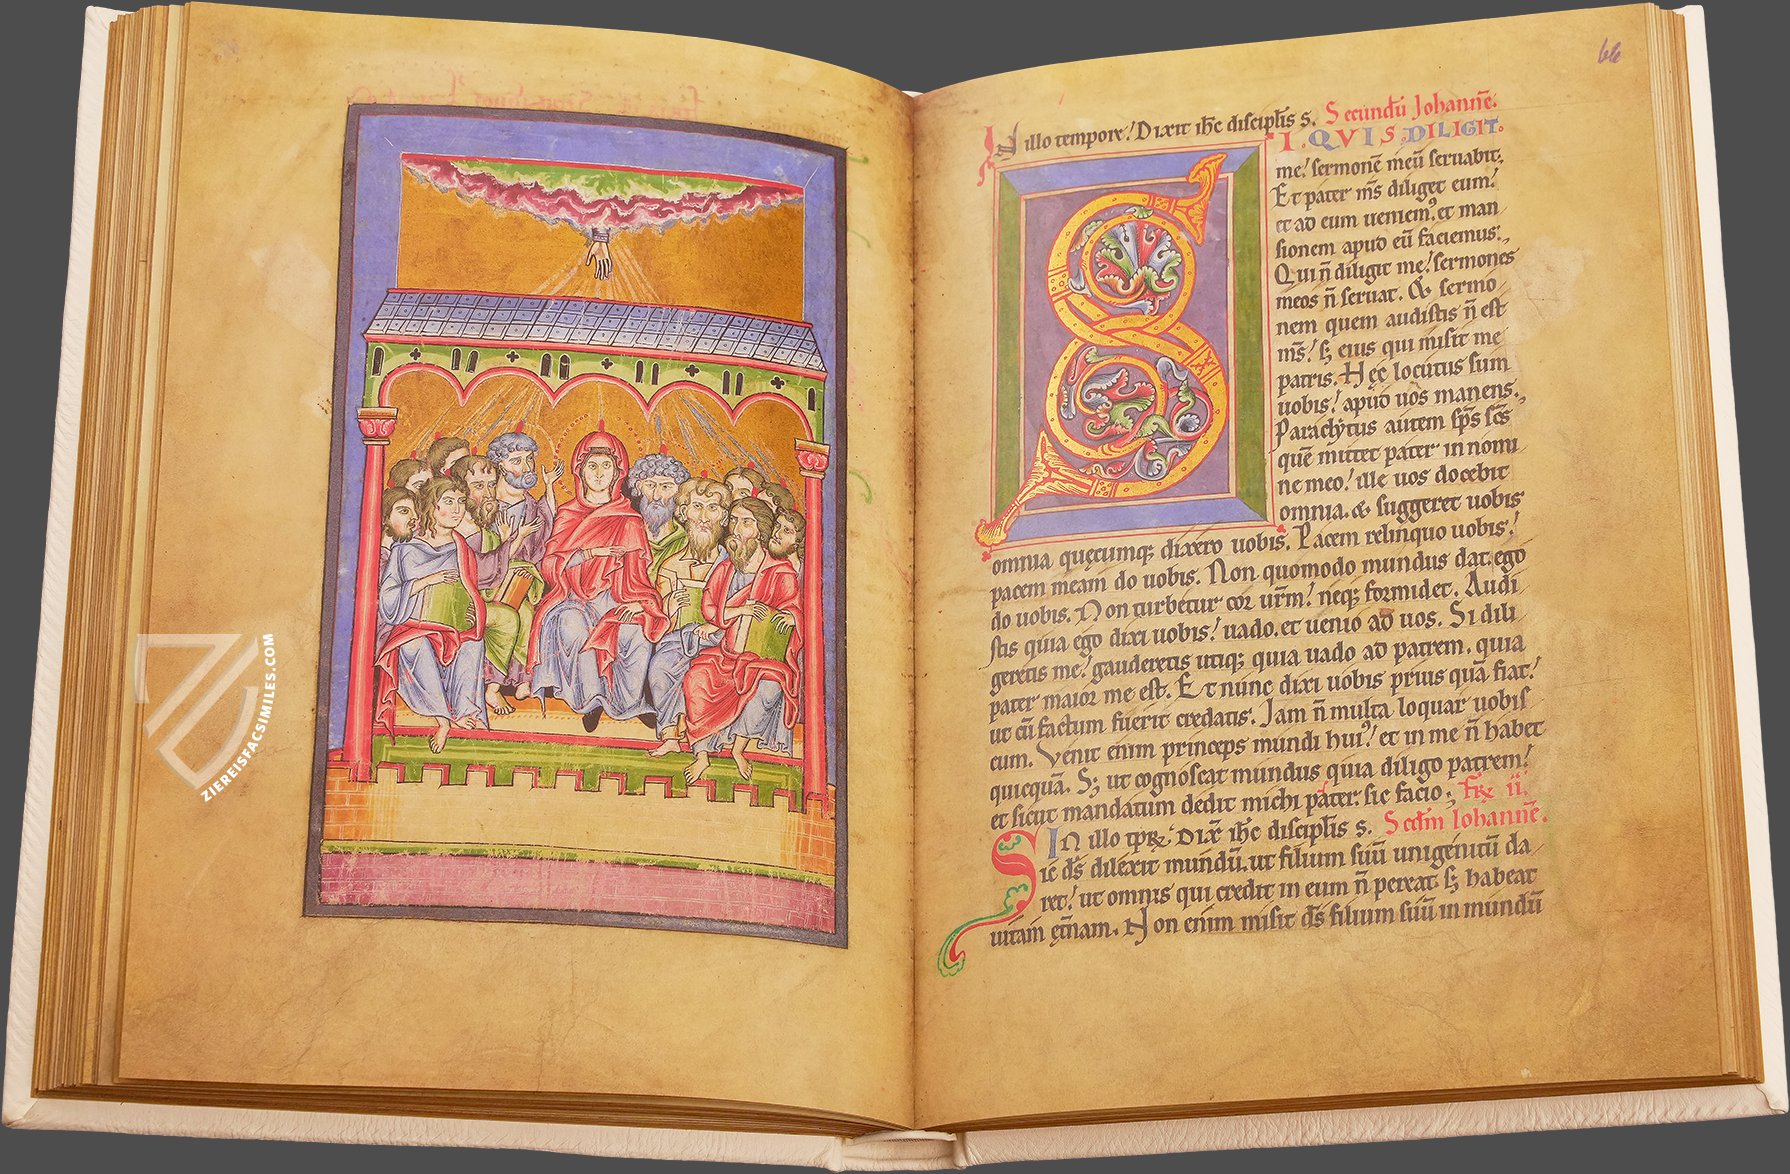 ZIEREISFACSIMILES.COM
66
In illo tempore! Dixit ih̄c disciplis s. Secundū Johannē.
SI. QVIS DILIGIT.
me! sermonē meū seruabit;
Et pater m̄s diliget eum!
et ad eum ueniem', et man
sionem apud eū faciemus;
Qui n̄ diligit me! sermones
meos n̄ seruat. & sermo
nem quem audistis n̄ est
m̄s! s; eius qui misit me
patris. Hęc locutus sum
uobis! apud uos manens.
Paraclytus autem sp̄s sc̄s
quē mittet pater in nomi
ne meo! ille uos docebit
omnia. & suggeret uobis
omnia quęcumq; dixero uobis. Pacem relinquo uobis!
pacem meam do uobis. Non quomodo mundus dat. ego
do uobis. Non turbetur cor ur̄m! neq; formidet. Audi
stis quia ego dixi uobis! uado. et uenio ad uos. Si dili
geretis me! gauderetis utiq; quia uado ad patrem. quia
pater maior me est. Et nunc dixi uobis prius quā fiat!
ut cū factum fuerit credatis. Jam n̄ multa loquar uobis
cum. Venit enim princeps mundi hui'! et in me n̄ habet
quicquā. S; ut cognoscat mundus quia diligo patrem!
et sicut mandatum dedit michi pater. sic facio; Fr̄ ii.
IN illo tp̄r. Dix̄ ih̄c disciplis s. Scd̄m Iohannē.
Sic d̄s dilexit mundū. ut filium suū unigenitū da
ret! ut omnis qui credit in eum n̄ pereat. s; habeat
uitam ęt̄nam. Non enim misit d̄s filium suū in mundū